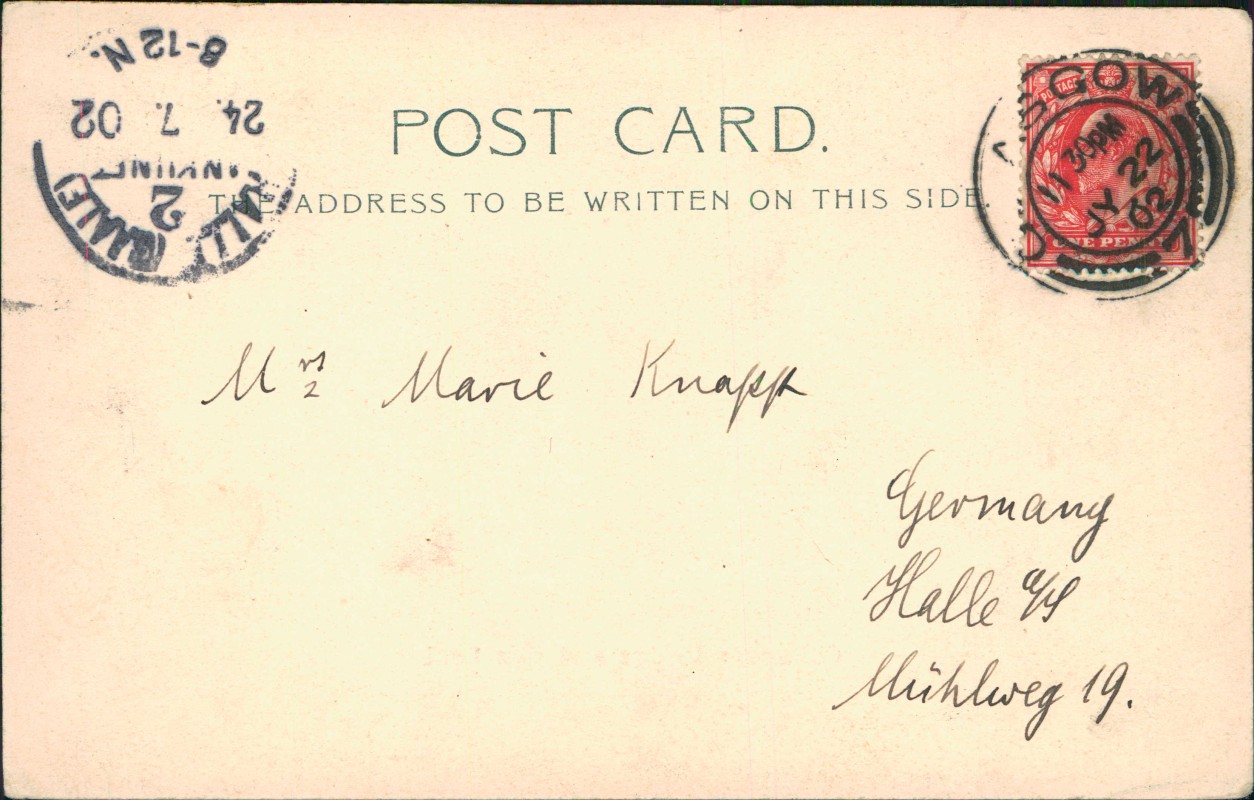 8-12 N.
24. 7. 02
2
POST CARD.
THE ADDRESS TO BE WRITTEN ON THIS SIDE.
POSTAGE
11 30PM
JY 22
02
7
ONE PENNY
Mrs Marie Knapp
Germany
Halle a/S
Mühlweg 19.